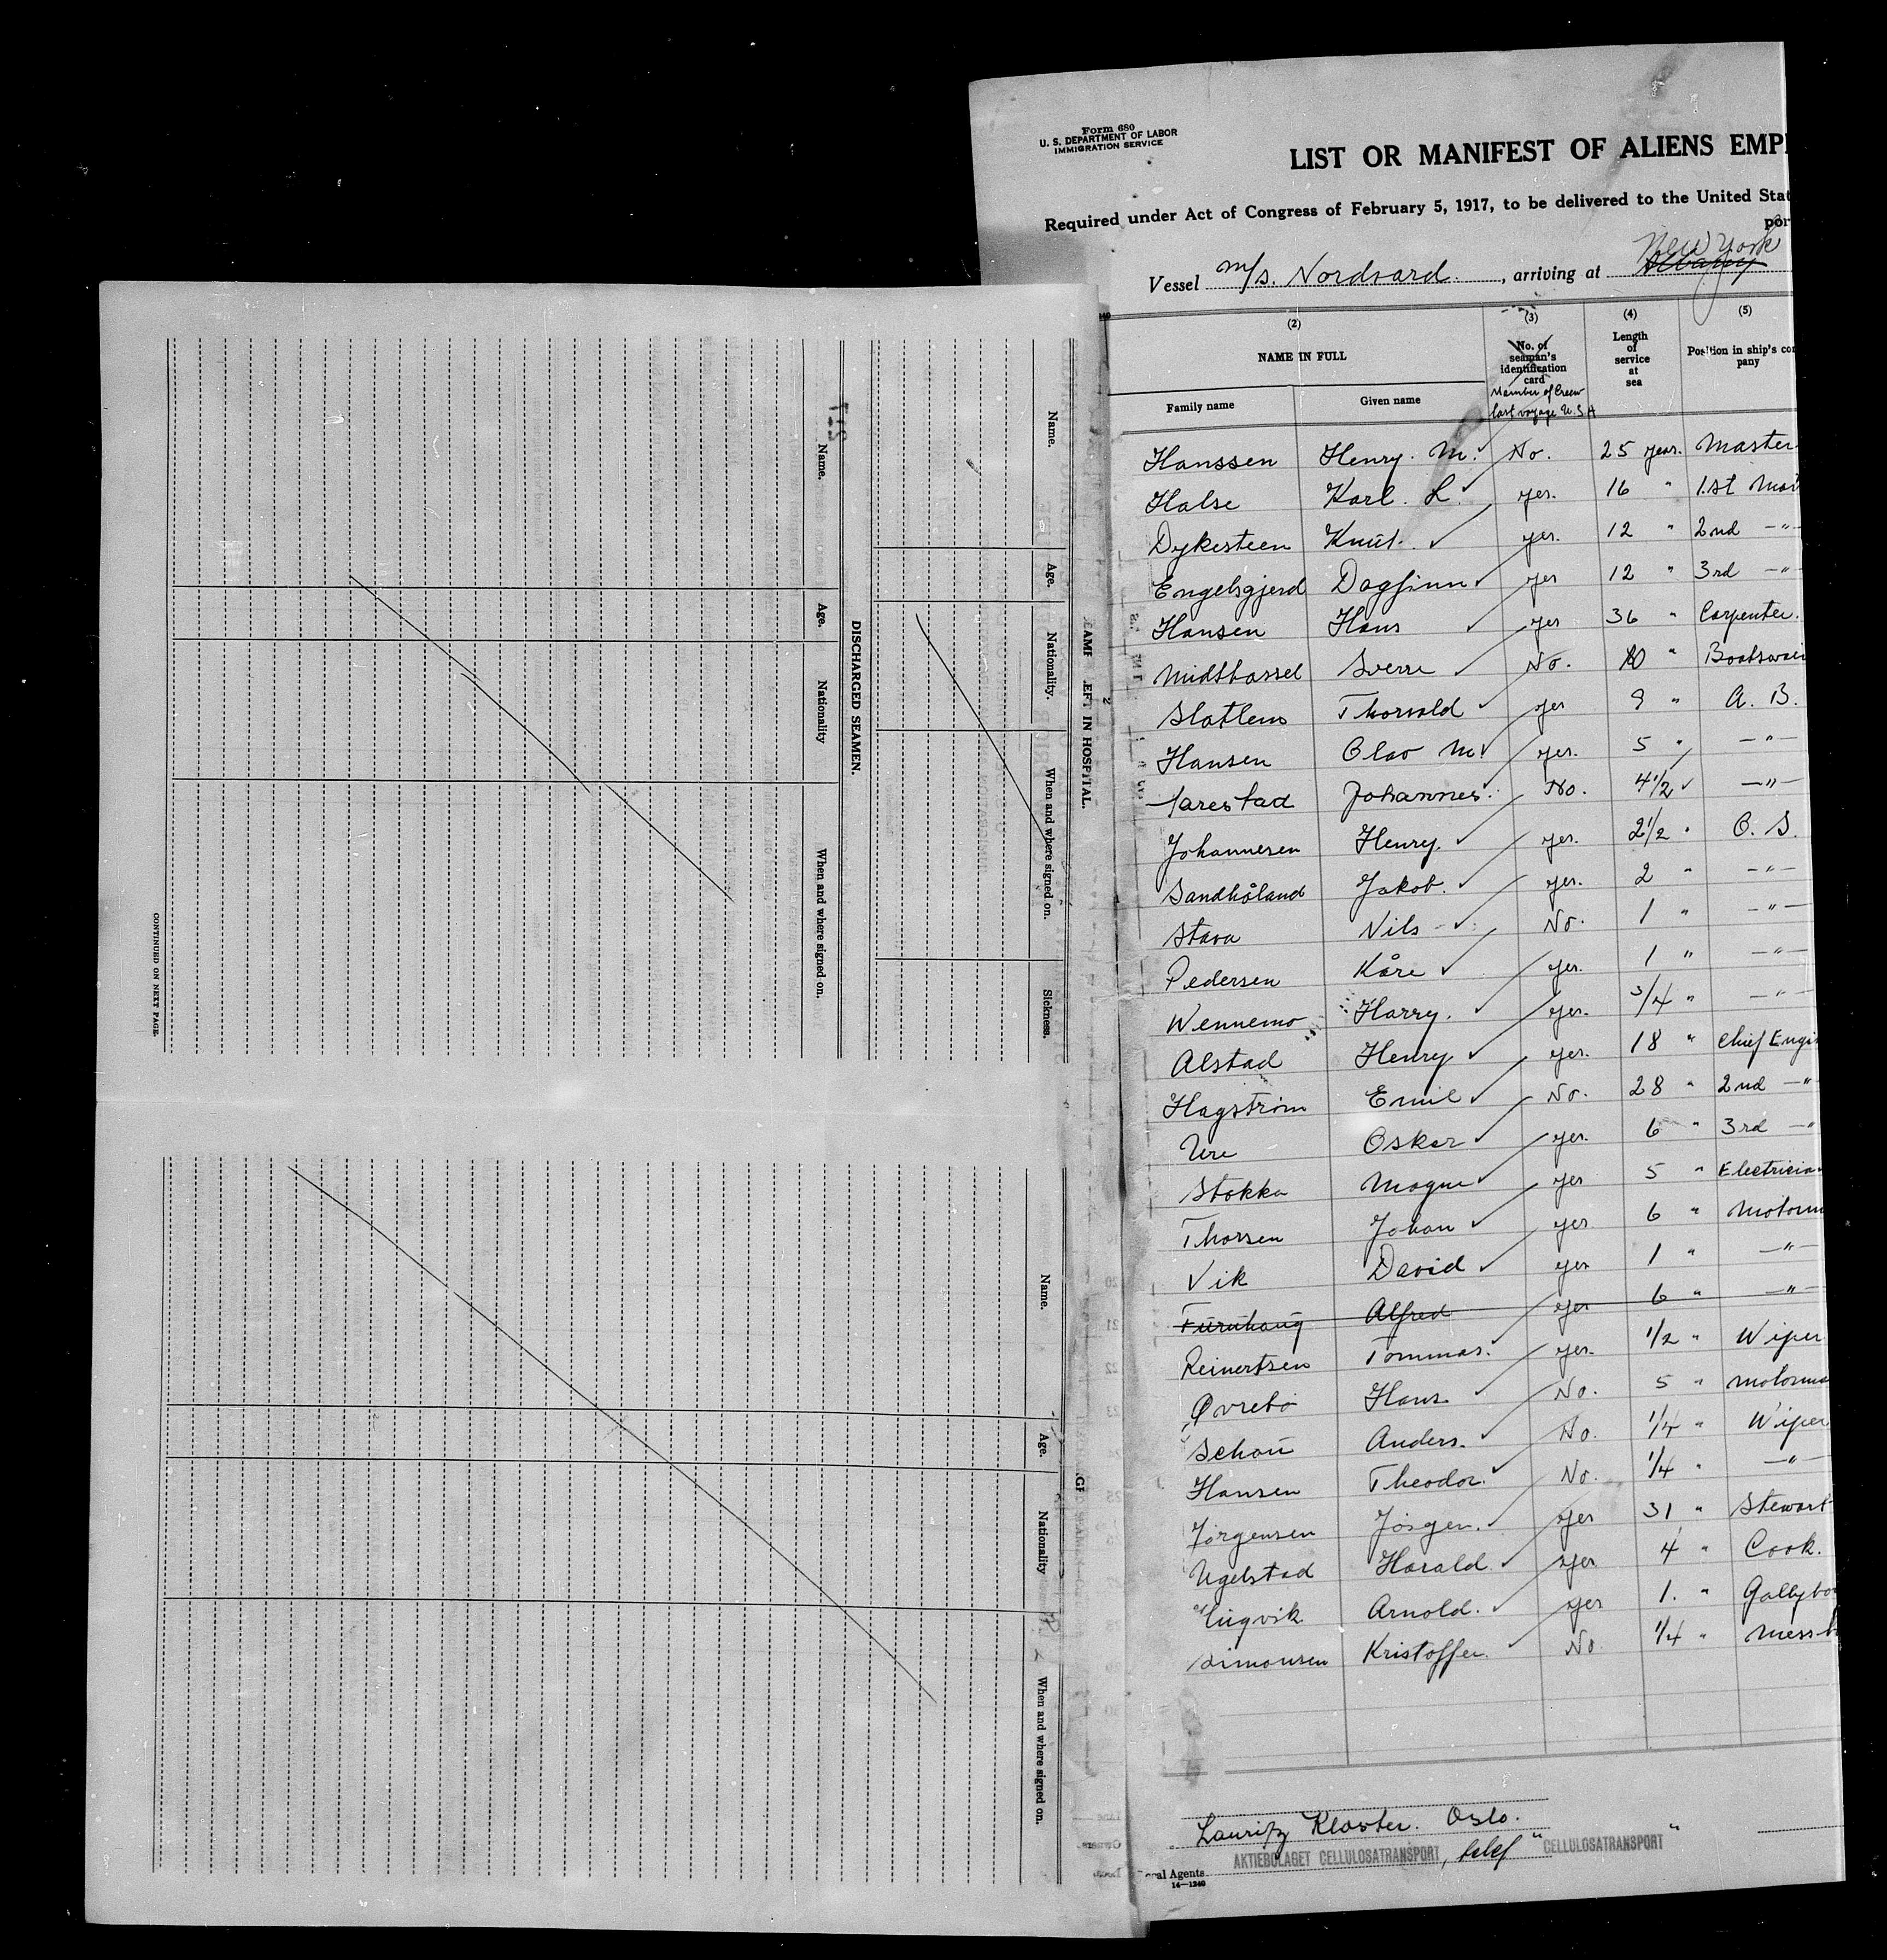 Form 680
U. S. DEPARTMENT OF LABOR
IMMIGRATION SERVICE
LIST OR MANIFEST OF ALIENS EMP
Required under Act of Congress of February 5, 1917, to be delivered to the United Stat
por
New York
Vessel m/s. Nordvard. , arriving at Albany
(2) (3) (4) (5)
NAME IN FULL
Family name Given name
No. of seaman's identification card
Member of Crew last voyage U.S.A
Length of service at sea
Position in ship's com
pany
Hanssen Henry. M. No. 25 years. Master
Halse Karl. L. yes. 16 " 1.st Mat
Dykesteen Knut. yes. 12 " 2nd —"—
Engelsgjerd Dagfinn yes 12 " 3rd —"—
Hansen Hans yes 36 " Carpenter.
Midtbassel Sverre No. 10 " Boatswai
Slatlem Thorvald yes 9 " A. B.
Hansen Olav M. yes. 5 " —"—
Johannes. No. 4½ —"—
Johannesen Henry. yes. 2½ " O. S.
Sandhåland Jakob. yes. 2 " —"—
Stava Nils No. 1 " —"—
Pedersen Kåre yes. 1 " —"—
Wennemo Harry. yes. 3/4 " —"—
Alstad Henry yes. 18 " Chief Engi
Hagström Emil No. 28 " 2nd —"—
Ure Oskar yes. 6 " 3rd —"
Stokka Magne yes 5 " Electricia
Thorsen Johan yes 6 " Motorm
Vik David yes 1 " —"—
21 Furuhaug Alfred yes 6 " —"—
22 Reinertsen Tommas. yes. 1/2 " Wiper
23 Øvrebø Hans. No. 5 " Motorma
Schau Anders. No. 1/4 " Wiper
25 Hansen Theodor. No. 1/4 " —"—
Jørgensen Jørgen. yes 31 " Stewart
Ugelstad Harald. yes 4 " Cook.
Arnold. yes 1. " Gallybo
Simonsen Kristoffer. No 1/4 " Mess b
Lauritz Kloster. Oslo.
AKTIEBOLAGET CELLULOSATRANSPORT, telef "CELLULOSATRANSPORT"
Agents
14—1240
EFT IN HOSPITAL.
Name. Age. Nationality. When and where signed on. Sickness.
DISCHARGED SEAMEN.
Name. Age. Nationality When and where signed on.
CONTINUED ON NEXT PAGE.
Name. Age. Nationality When and where signed on.